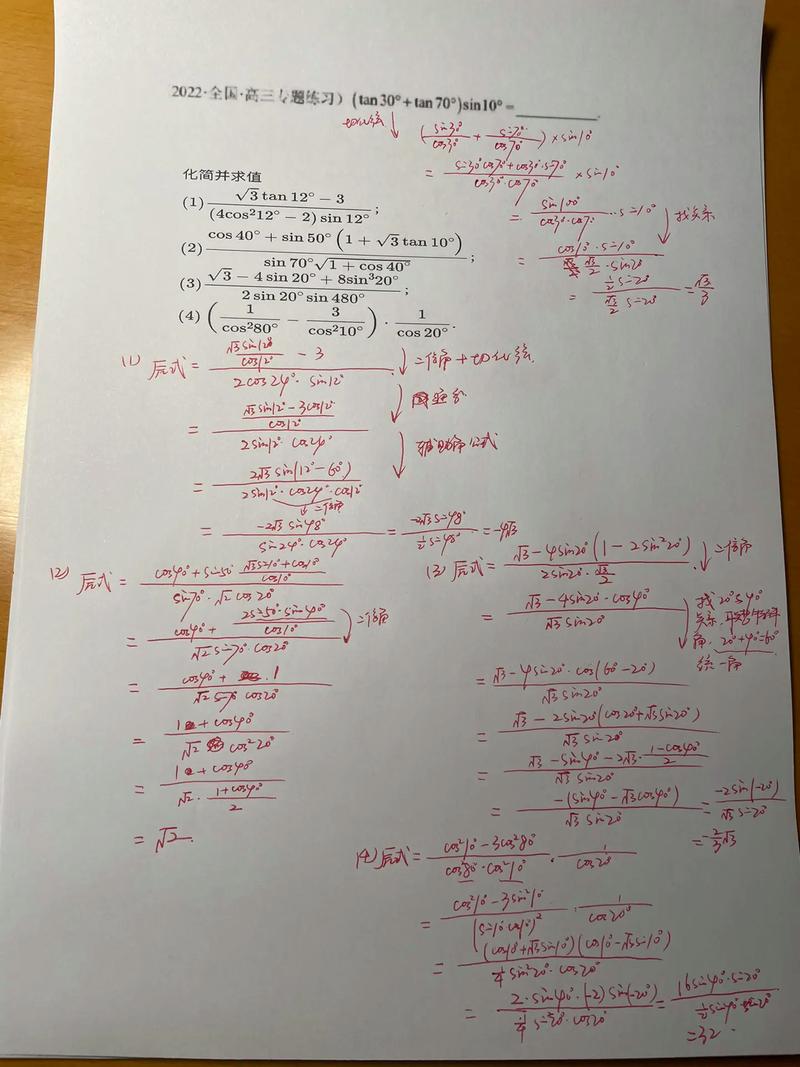 2022·全国·高三专题练习) (tan30°+tan70°)sin10°=________.
切化弦↓ (sin30°/cos30° + sin70°/cos70°)×sin10°
= (sin30°cos70°+cos30°·sin70°)/(cos30°·cos70°) ×sin10°
= sin100°/(cos30°·cos70°)·sin10° ↓找关系
= cos10°·sin10°/(√3/2·sin20°)
= (1/2 sin20°)/(√3/2 sin20°) = √3/3
化简并求值
(1) (√3 tan 12° − 3)/((4cos²12° − 2) sin 12°);
(2) (cos 40° + sin 50° (1 + √3 tan 10°))/(sin 70°√(1 + cos 40°));
(3) (√3 − 4 sin 20° + 8sin³20°)/(2 sin 20° sin 480°);
(4) (1/cos²80° − 3/cos²10°) · 1/cos 20°.
(1) 原式 = (√3sin12°/cos12° − 3)/(2cos24°·sin12°) ↓二倍角+切化弦
= ((√3sin12°−3cos12°)/cos12°)/(2sin12°·cos24°)
= 2√3 sin(12°−60°)/(2sin12°·cos24°·cos12°) ↓辅助角公式
↓二倍角
= −2√3 sin48°/(sin24°·cos24°) = −2√3 sin48°/(1/2 sin48°) = −4√3
(2) 原式 = (cos40°+sin50°·(√3sin10°+cos10°)/cos10°)/(sin70°·√2 cos20°)
= (cos40°+2sin50°·sin40°/cos10°)/(√2 sin70°·cos20°) ↓二倍角
= (cos40°+1)/(√2 sin70° cos20°)
= (1+cos40°)/(√2 cos²20°)
= (1+cos40°)/(√2·(1+cos40°)/2)
= √2.
(3) 原式 = (√3−4sin20°(1−2sin²20°))/(2sin20°·√3/2) ↓二倍角
= (√3−4sin20°·cos40°)/(√3 sin20°)
找20°与40°
关系,
角. 20°+40°=60°
统一角
= (√3−4sin20°·cos(60°−20°))/(√3 sin20°)
= (√3−2sin20°(cos20°+√3sin20°))/(√3 sin20°)
= (√3−sin40°−2√3·(1−cos40°)/2)/(√3 sin20°)
= −(sin40°−√3cos40°)/(√3 sin20°) = −2sin(−20°)/(√3 sin20°)
= −2/3 √3
(4) 原式 = (cos²10°−3cos²80°)/(cos²80°·cos²10°)·1/cos20°
= (cos²10°−3sin²10°)/(sin10°cos10°)²·1/cos20°
= (cos10°+√3sin10°)(cos10°−√3sin10°)/(1/4 sin²20°·cos20°)
= 2·sin40°·(−2)sin(−20°)/(1/4 sin²20°·cos20°) = 16sin40°·sin20°/(1/2 sin40°·sin20°)
=32.